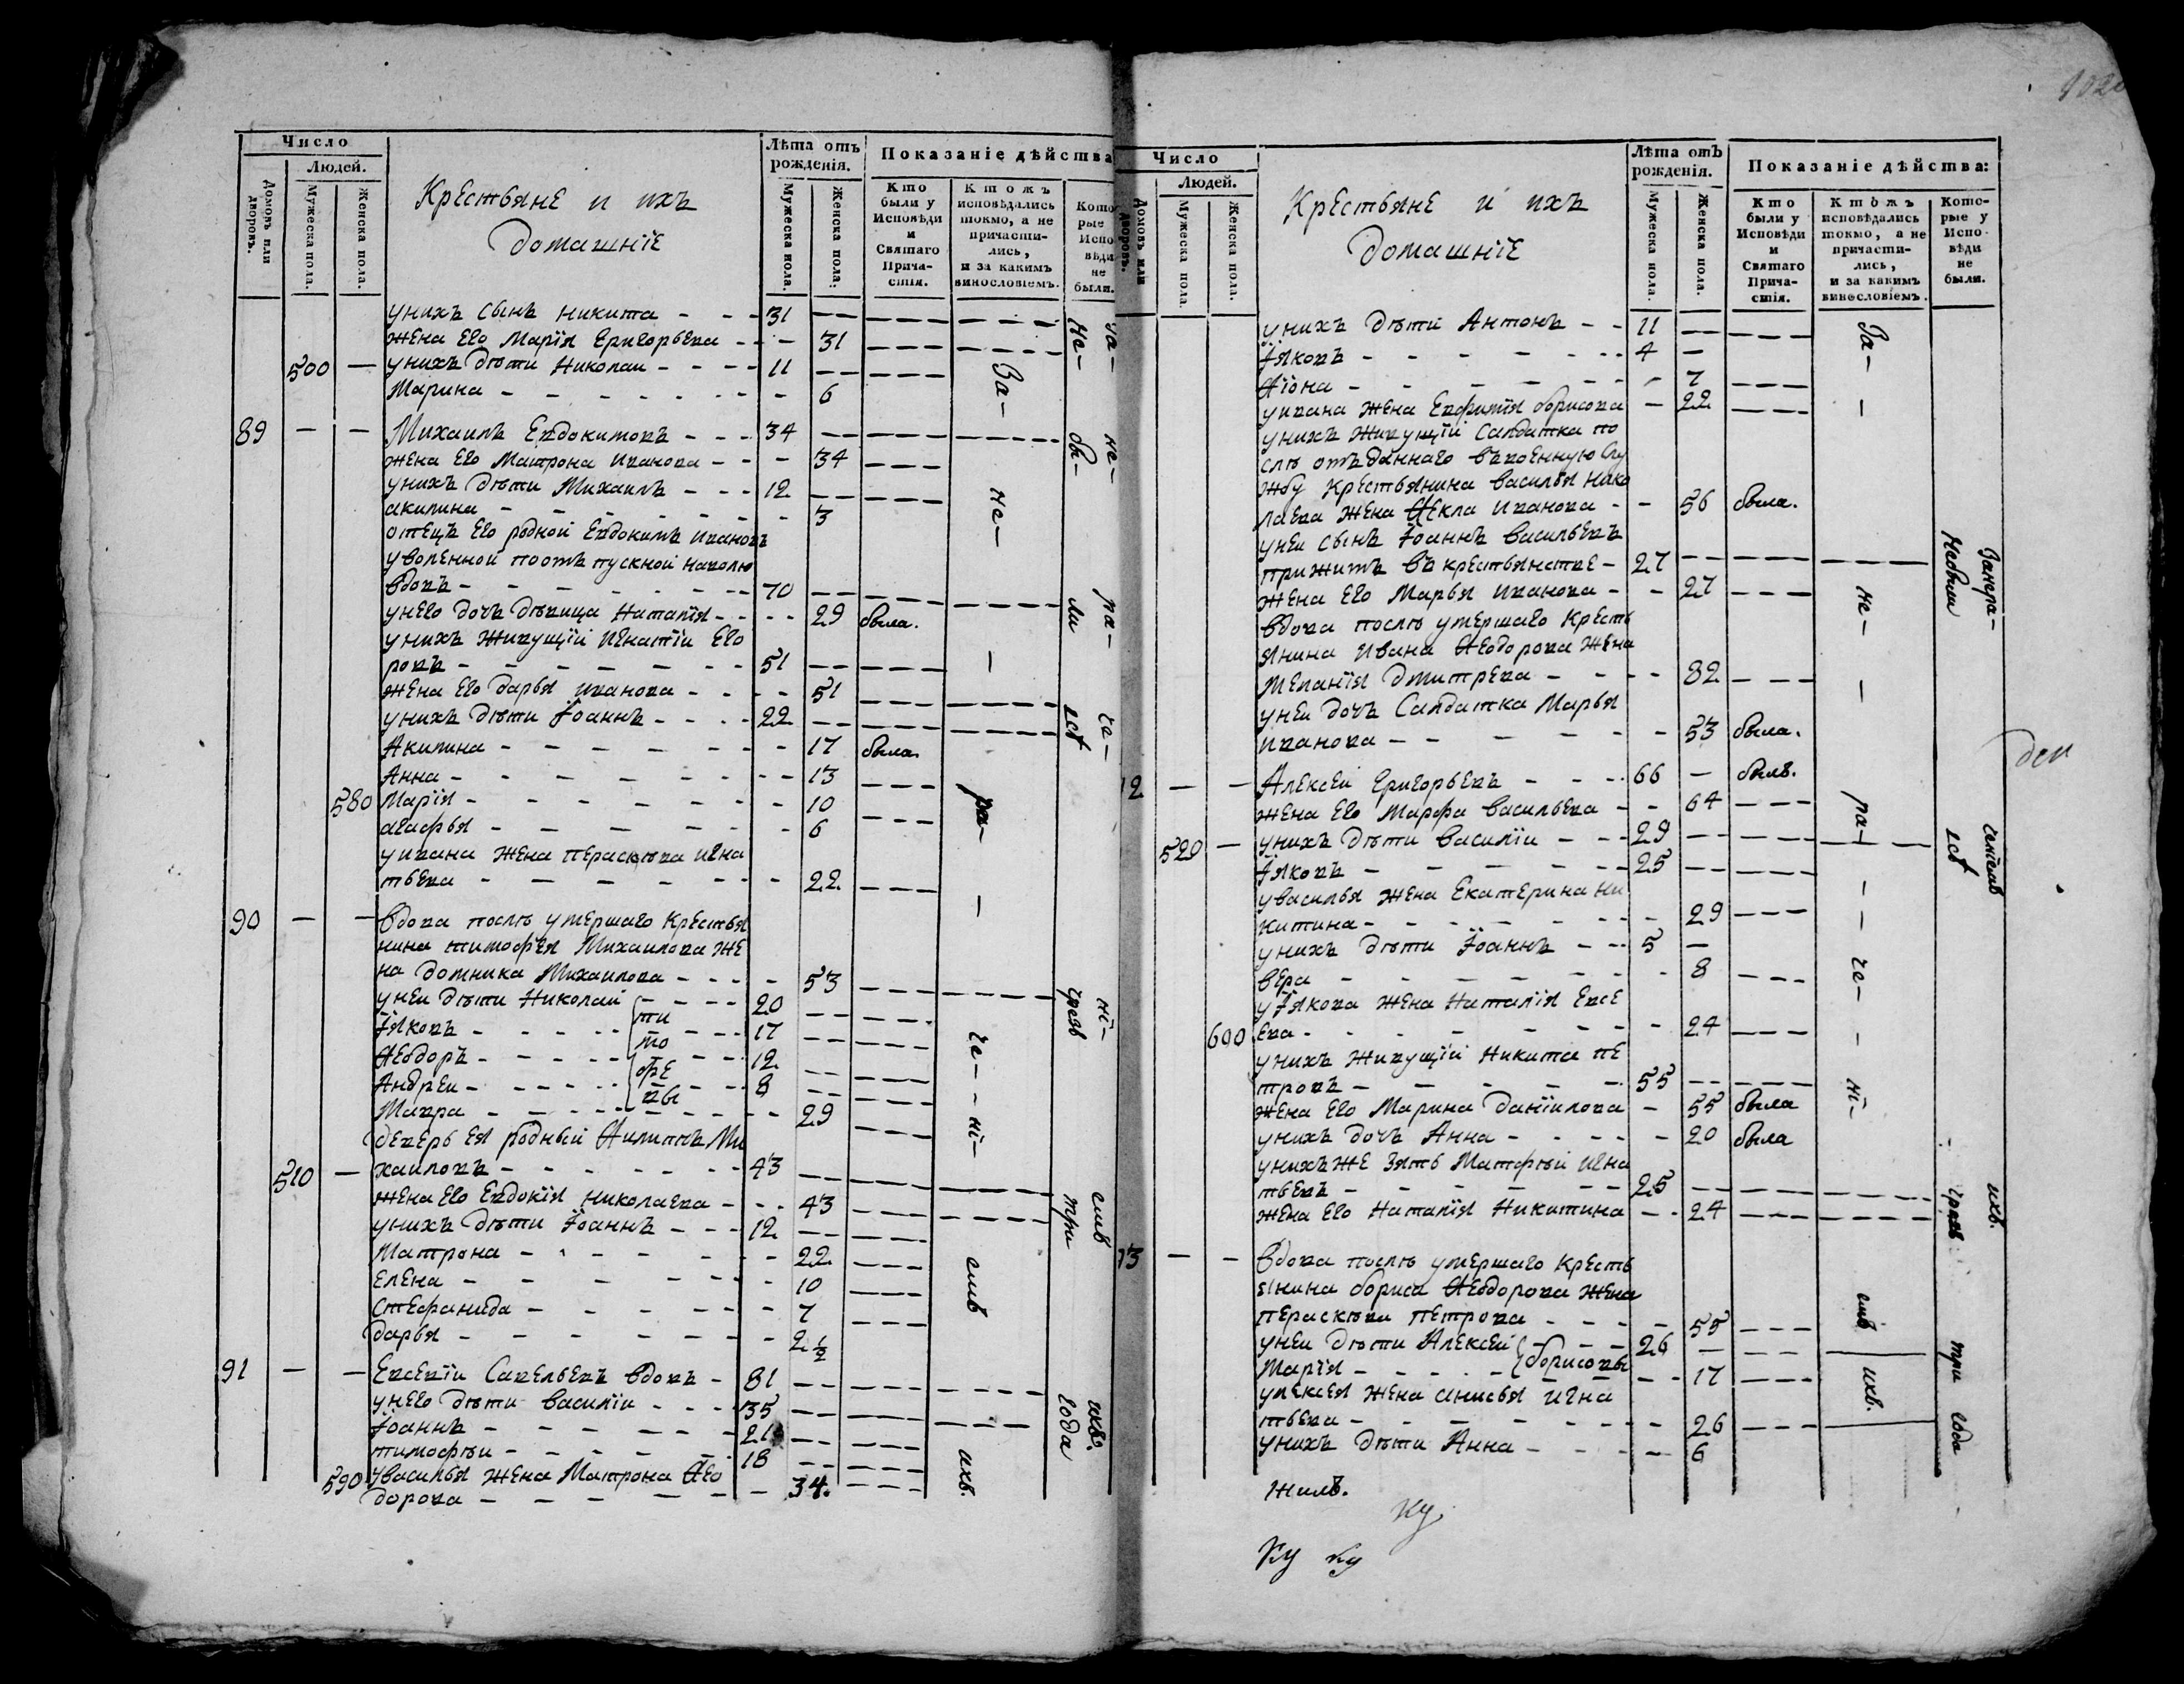 Число
Людей.
Домовъ или дворовъ.
Мужеска пола.
Женска пола.
Крестьяне и ихъ
домашнїе
Лѣта отъ рожденія.
Мужеска пола.
Женска пола.
Показаніе дѣйства
Кто были у Исповѣди и Святаго Причастія.
Ктожъ исповѣдались токмо, а не причастились, и за какимъ винословіемъ.
Которые у Исповѣди не были.
унихъ сынъ никита - - - 31
жена его Марїя Григорьева - - - 31
500 — унихъ дѣти Николаи - - - - 11
Марина - - - - - - - - 6
89 — — Михаилъ Евдокимовъ - - - 34
жена его Матрона иванова - - - 34
унихъ дѣти Михаилъ - - - 12
акилина - - - - - - - 3
отецъ его родной Евдокимъ ивановъ
уволенной поотъ пускной наволю
вдовъ - - - - - - - 70
унего дочь дѣвица Наталїя - - - - 29 была.
унихъ живущїи игнатїи его
ровъ - - - - - - - 51
жена его дарья иванова - - - - 51
унихъ дѣти Їоаннъ - - - - 22
Акилина - - - - - - - 17 была.
Анна - - - - - - - - 13
580 Марїя - - - - - - - 10
агафья - - - - - - - 6
уивана жена пераскѣва игна
тьева - - - - - - - 22
90 — — вдова послѣ умершаго крестья
нина тимофея Михаилова же
на домника Михаилова - - - - 53
унеи дѣти Николаи - - - - 20
Їяковъ - - - - - ти мо - - - 17
Ѳеодоръ - - - - - фее - - 12
Андреи - - - - - вы - - - 8
Мавра - - - - - - - - 29
деверь ея родныи Ѳилипъ Ми
510 — хаиловъ - - - - - - - 43
жена его Евдокїя николаева - - - 43
унихъ дѣти Їоаннъ - - - 12
Матрона - - - - - - - 22
елена - - - - - - - 10
стефанида - - - - - - - 7
дарья - - - - - - - 2 ½
91 — — Евсевїи Савельевъ вдовъ - 81
унего дѣти василїи - - - - 35
Їоаннъ - - - - - - - 21
тимофѣи - - - - - - - 18
590 увасилья жена Матрона Ѳео
дорова - - - - - - - 34.
За-
не-
ра-
че-
нї-
емъ
ихъ.
Не-
бы-
ли
три
года
За-
не-
ра-
че-
нї-
емъ
ихъ.
Число
Людей.
Домовъ или дворовъ.
Мужеска пола.
Женска пола.
Крестьяне и ихъ
домашнїе
Лѣта отъ рожденія.
Мужеска пола.
Женска пола.
Показаніе дѣйства:
Кто были у Исповѣди и Святаго Причастія.
Ктожъ исповѣдались токмо, а не причастились, и за какимъ винословіемъ.
Которые у Исповѣди не были.
унихъ дѣти Антонъ - - 11
Їяковъ - - - - - - - 4 —
- - - - - - - 7
уивана жена Евфимїя борисова — 22
унихъ живущїи салдатка по
слѣ отъданнаго въвоенную слу
жбу крестьянина василья нико
лаева жена Ѳекла иванова - - 56 была.
унеи сынъ Їоаннъ васильевъ
прижитъ въ крестьянстве - 27
жена его Марья иванова - - 27
вдова послѣ умершаго кресть
янина ивана Ѳеодорова жена
меланїя дмитрева - - - - 82
унеи дочь салдатка Марья
иванова - - - - - - 53 была.
12 — — Алексеи Григорьевъ - - - 66 — былъ.
жена его Марфа васильева - - 64
520 — унихъ дѣти василїи - - - 29
Їяковъ - - - - - - - 25
увасилья жена Екатерина ни
китина - - - - - - - - 29
унихъ дѣти Їоаннъ - - - 5 —
вера - - - - - - - - 8
уЇякова жена Наталїя Евсе
600 ева - - - - - - - - 24
унихъ живущїи Никита пе
тровъ - - - - - - - 55
жена его Марина данїилова - 55 была
унихъ дочь Анна - - - - - 20 была
унихъже зять Матфѣи игна
тьевъ - - - - - - - 25
жена его Наталїя Никитина - - 24
13 — — вдова послѣ умершаго кресть
янина бориса Ѳеодорова жена
пераскѣва петрова - - - - 55
унеи дѣти Алексеи - - - 26 —
Марїя - - - - борисовы - - 17
улексея жена анисья игна
тьева - - - - - - - - 26
унихъ дѣти Анна - - - - - 6
За-
не-
ра-
че-
нї-
емъ
ихъ.
Небыли
три года
Занера-
ченїемъ
ихъ.
жилъ.
ку
ку ку